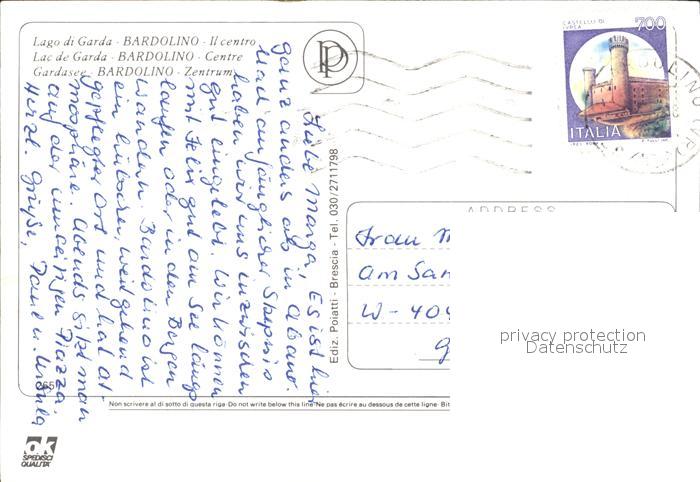 Lago di Garda - BARDOLINO - Il centro
Lac de Garda - BARDOLINO - Centre
Gardasee - BARDOLINO - Zentrum
Liebe Marga, Es ist hier
ganz anders als in Abano.
Nach anfänglicher Skepsis
haben wir uns inzwischen
gut eingelebt. Wir können
mit Felix gut am See längs
laufen oder in den Bergen
wandern. Bardolino ist
ein hübscher, weitgehend
gepflegter Ort und hat At-
mosphäre. Abends sitzt man
auf der Piazza.
Herzl. Grüße, u. Ursula
265
Ediz. Poiatti - Brescia - Tel. 030/2711798
PP
CASTELLO DI
IVREA
700
ITALIA
ADDRESS
Frau
Am San
W-404
privacy protection
Datenschutz
Non scrivere al di sotto di questa riga-Do not write below this line-Ne pas écrire au dessous de cette ligne- Bit
ok
SPEDISCI
QUALITA'